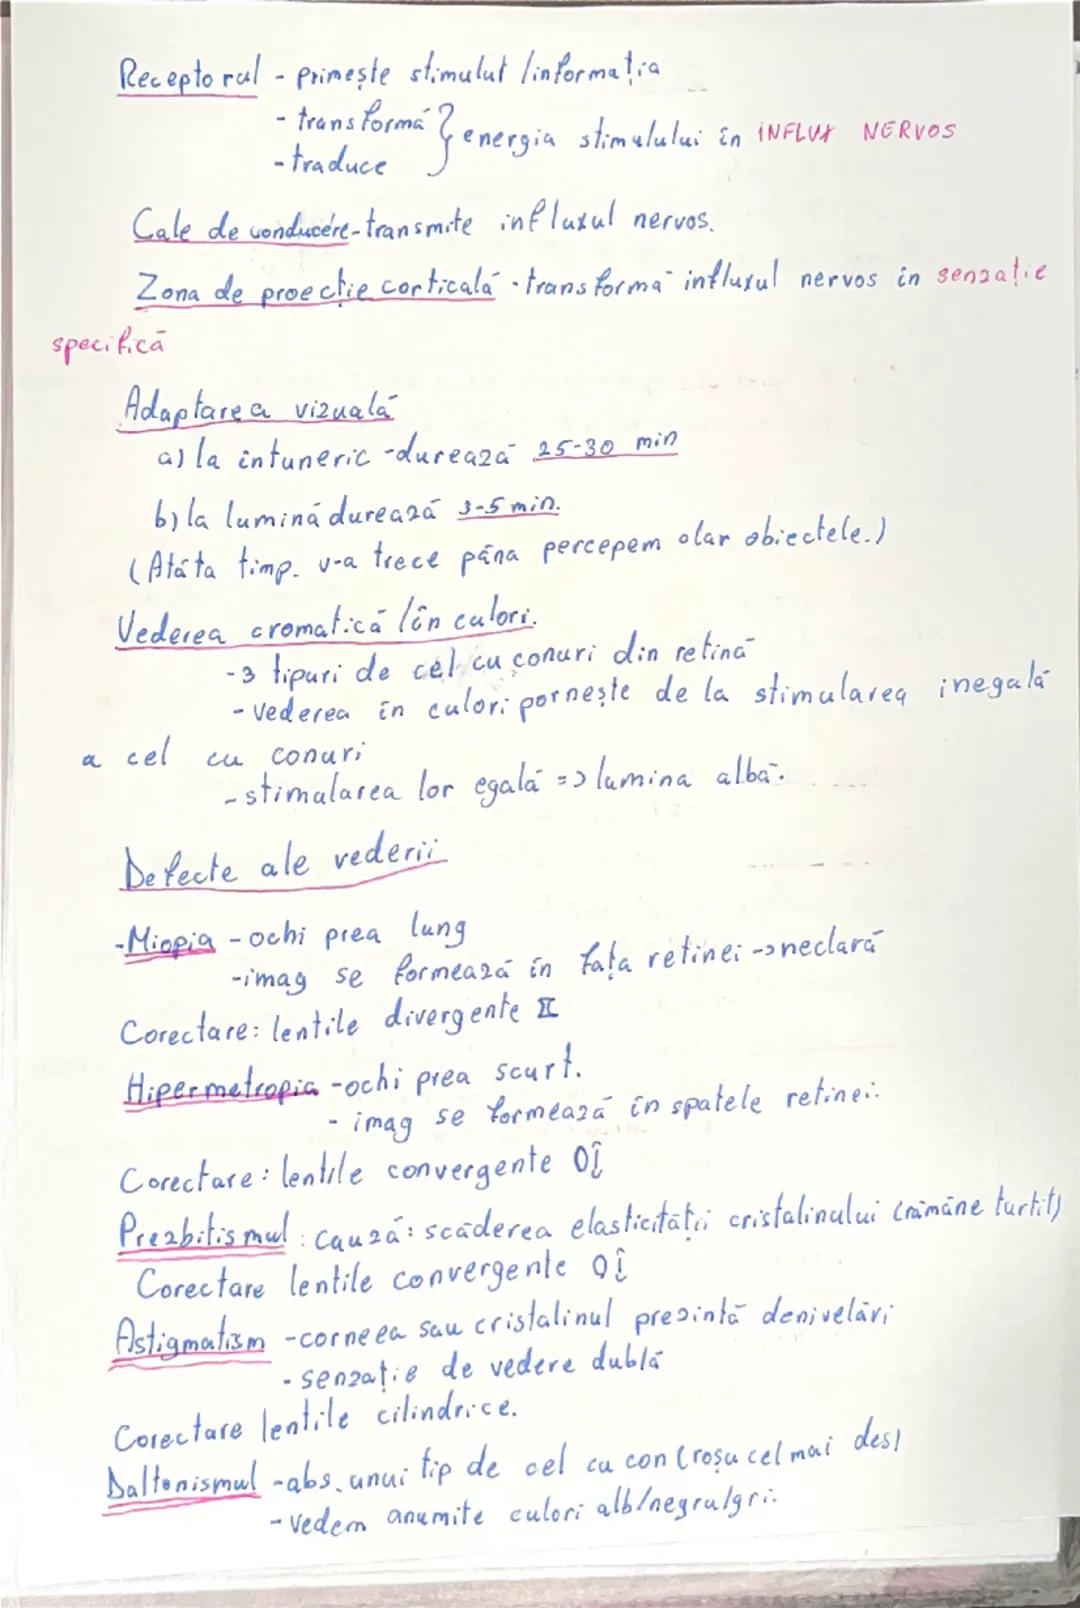 Receptorul - primește stimulul /informația
- transformă } energia stimulului în INFLUX NERVOS
- traduce
Cale de conducere - transmite influxul nervos.
Zona de proecție corticală - transformă influxul nervos în senzație
specifică
Adaptarea vizuală
a) la întuneric - durează 25-30 min
b) la lumină durează 3-5 min.
(Atâta timp. v-a trece până percepem clar obiectele.)
Vederea cromatică /în culori.
- 3 tipuri de cel cu conuri din retină
- vederea în culori pornește de la stimularea inegală
a cel cu conuri
- stimularea lor egală => lumina albă.
Defecte ale vederii
- Miopia - ochi prea lung
- imag se formează în fața retinei -> neclară
Corectare: lentile divergente
Hipermetropia - ochi prea scurt.
- imag se formează în spatele retinei.
Corectare: lentile convergente
Prezbitismul: cauză: scăderea elasticității cristalinului (rămâne turtit)
Corectare lentile convergente
Astigmatism - corneea sau cristalinul prezintă denivelări
- senzație de vedere dublă
Corectare lentile cilindrice.
Daltonismul - abs. unui tip de cel cu con (roșu cel mai des)
- vedem anumite culori alb/negru/gri.